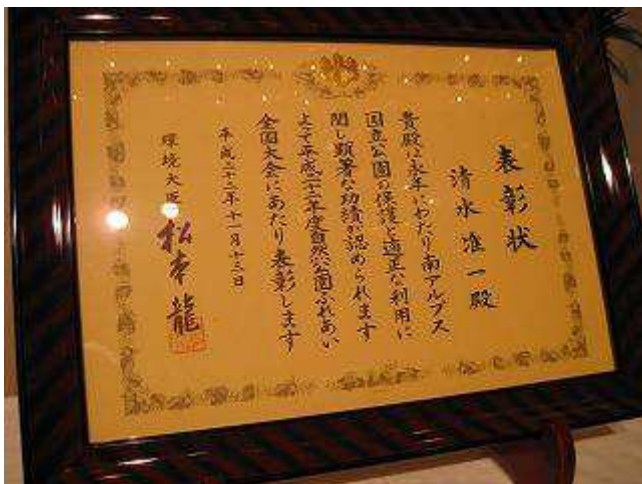 表彰状
清水准一殿
貴殿は永年にわたり南アルプス
国立公園の保護と適正な利用に
関し顕著な功績が認められます
よって平成二十二年度自然公園ふれあい
全国大会にあたり表彰します
平成二十二年十一月十三日
環境大臣 松本龍